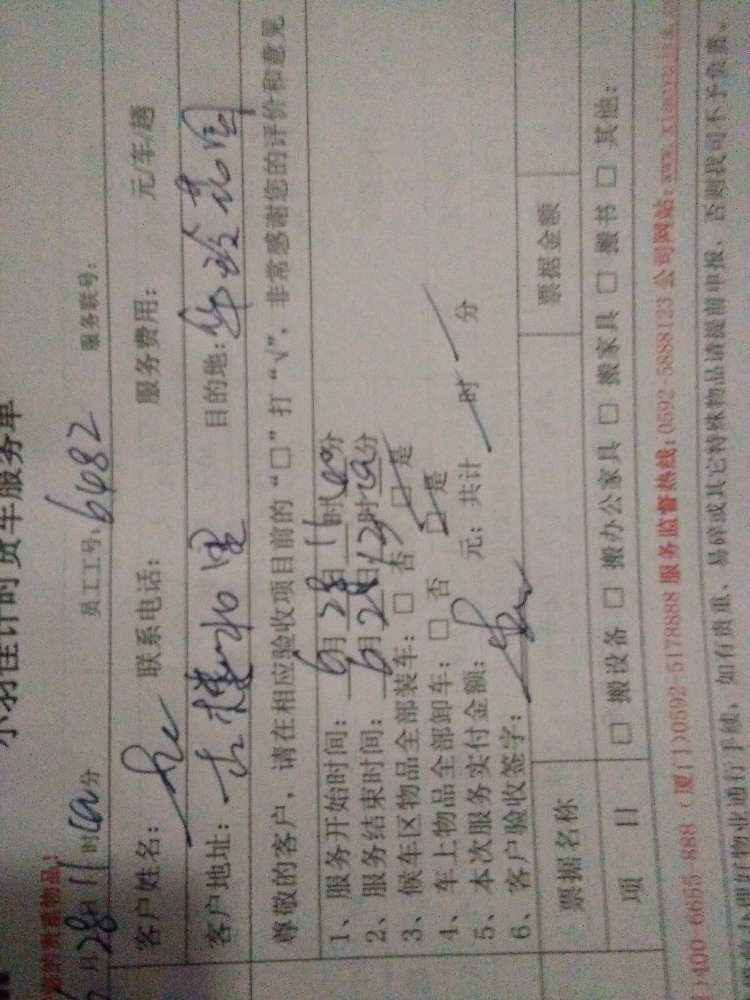 小羽佳计时货车服务单
的贵重物品!
6月28日11时00分 员工工号:6482 服务联号:
客户姓名: 联系电话: 服务费用: 元/车/趟
客户地址: 目的地:
尊敬的客户, 请在相应验收项目前的“□”打“√”, 非常感谢您的评价和意见
1、服务开始时间: 6月28日11时00分
2、服务结束时间: 6月28日12时00分
3、候车区物品全部装车: □ 否 □ 是
4、车上物品全部卸车: □ 否 □ 是
5、本次服务实付金额: 元; 共计 时 分
6、客户验收签字:
票据名称 票据金额
项 目 □ 搬设备 □ 搬办公家具 □ 搬家具 □ 搬书 □ 其他:
)400-6685-888 (厦门)0592-5178888 服务监督热线:0592-5888123 公司网站:
办理好物业通行手续, 如有贵重、易碎或其它特殊物品请提前申报, 否则我司不予负责。